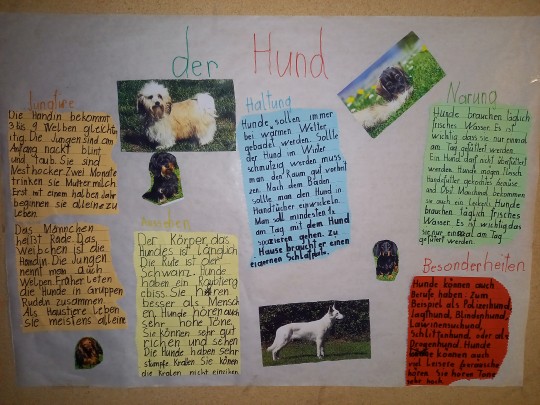 der Hund
Jungtiere
Die Hündin bekommt
3 bis 9 Welpen gleichze
itig. Die Jungen sind am
Anfang nackt blint
und taub. Sie sind
Nesthocker. Zwei Monate
trinken sie Muttermilch.
Erst mit einem halben Jahr
beginnen sie alleine zu
leben.
Das Männchen
heißt Rüde. Das
Weibchen ist die
Hündin. Die Jungen
nennt man auch
Welpen. Früher leten
die Hunde in Gruppen
Rudeln zusammen.
Als Haustiere leben
sie meistens alleine
Aussehen
Der Körper das
Hundes ist Länglich
Die Rute ist der
Schwanz. Hunde
haben ein Raubtierg
ebiss. Sie hören
besser als Mensch
en. Hunde hören auch
sehr hohe Töne.
Sie können sehr gut
richen und sehen
Die Hunde haben sehr
stumpfe Krallen. Sie können
die Kralen nicht einziehen
Haltung
Hunde sollen immer
bei warmen Wetter
gebadet werden. Sollte
der Hund im Winter
schmutzig werden muss
man den Raum gut vorhei
zen. Nach dem Baden
sollte man den Hund in
Handtücher einwickeln.
Man soll mindestens 1x
am Tag mit dem Hund
spazieren gehen. Zu
Hause braucht er einen
eigenen Schlafplatz.
Narung
Hunde brauchen täglich
frisches Wasser. Es ist
wichtig das sie nur einmal
am Tag gefüttert werden.
Ein Hund darf nicht überfüttert
werden. Hunde mögen Fleisch
Hundefutter gekochtes Gemüse
und Obst. Manchmal bekommen
sie auch ein Leckerli. Hunde
brauchen täglich frisches
Wasser. Es ist wichtig das
sie nur einmal am Tag
gefüttert werden.
Besonderheiten
Hunde können auch
Berufe haben: Zum
Beispiel als Polizeihund,
Jagdhund, Blindenhund,
Lawinensuchund,
Schlittenhund, oder als
Drogenhund. Hunde
können auch
viel leisere Geräusche
hören. Sie hören Töne
sehr hoch.